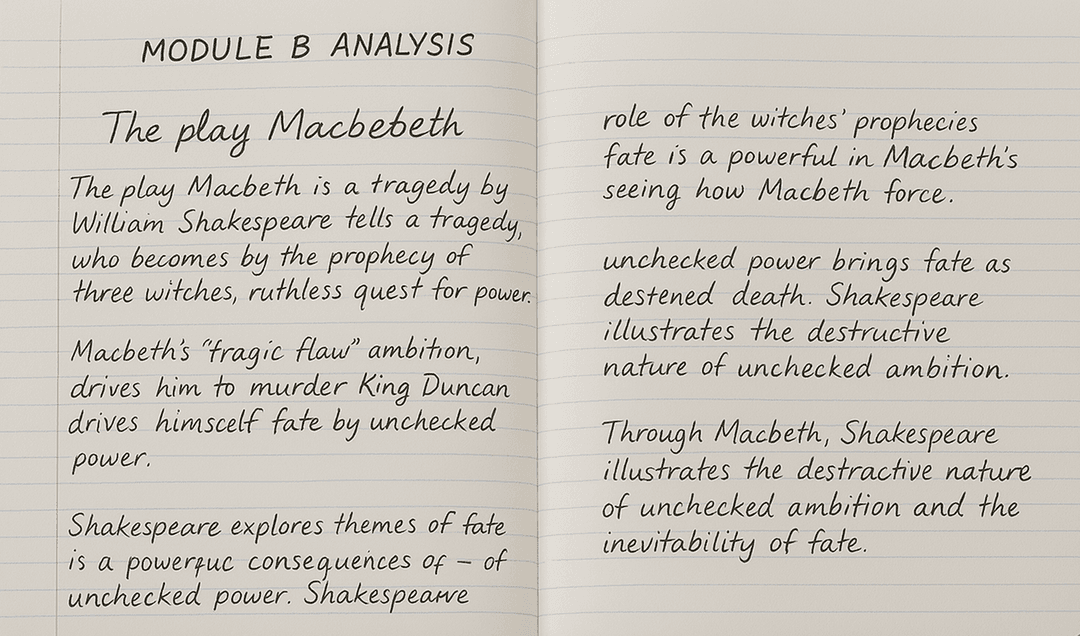 MODULE B ANALYSIS
The play Macbebeth
The play Macbeth is a tragedy by
William Shakespeare tells a tragedy,
who becomes by the prophecy of
three witches, ruthless quest for power.
Macbeth's “fragic flaw” ambition,
drives him to murder King Duncan
drives himscelf fate by unchecked
power.
Shakespeare explores themes of fate
is a powerꝼuc consequences of – of
unchecked power. Shakespearve
role of the witches' prophecies
fate is a powerful in Macbeth's
seeing how Macbeth force.
unchecked power brings fate as
destened death. Shakespeare
illustrates the destructive
nature of unchecked ambition.
Through Macbeth, Shakespeare
illustrates the destractive nature
of unchecked ambition and the
inevitability of fate.